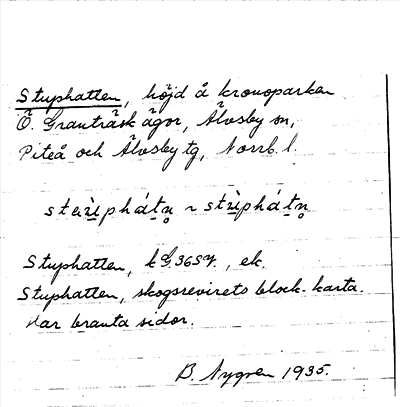 Stuphatten, höjd å kronoparken
Ö. Granträsk ägor, Älvsby sn,
Piteå och Älvsby tg, Norrb. l.
Stuphatten, k
Stuphatten, skogsrevirets block-karta.
Har branta sidor.
B. Nygren 1935.